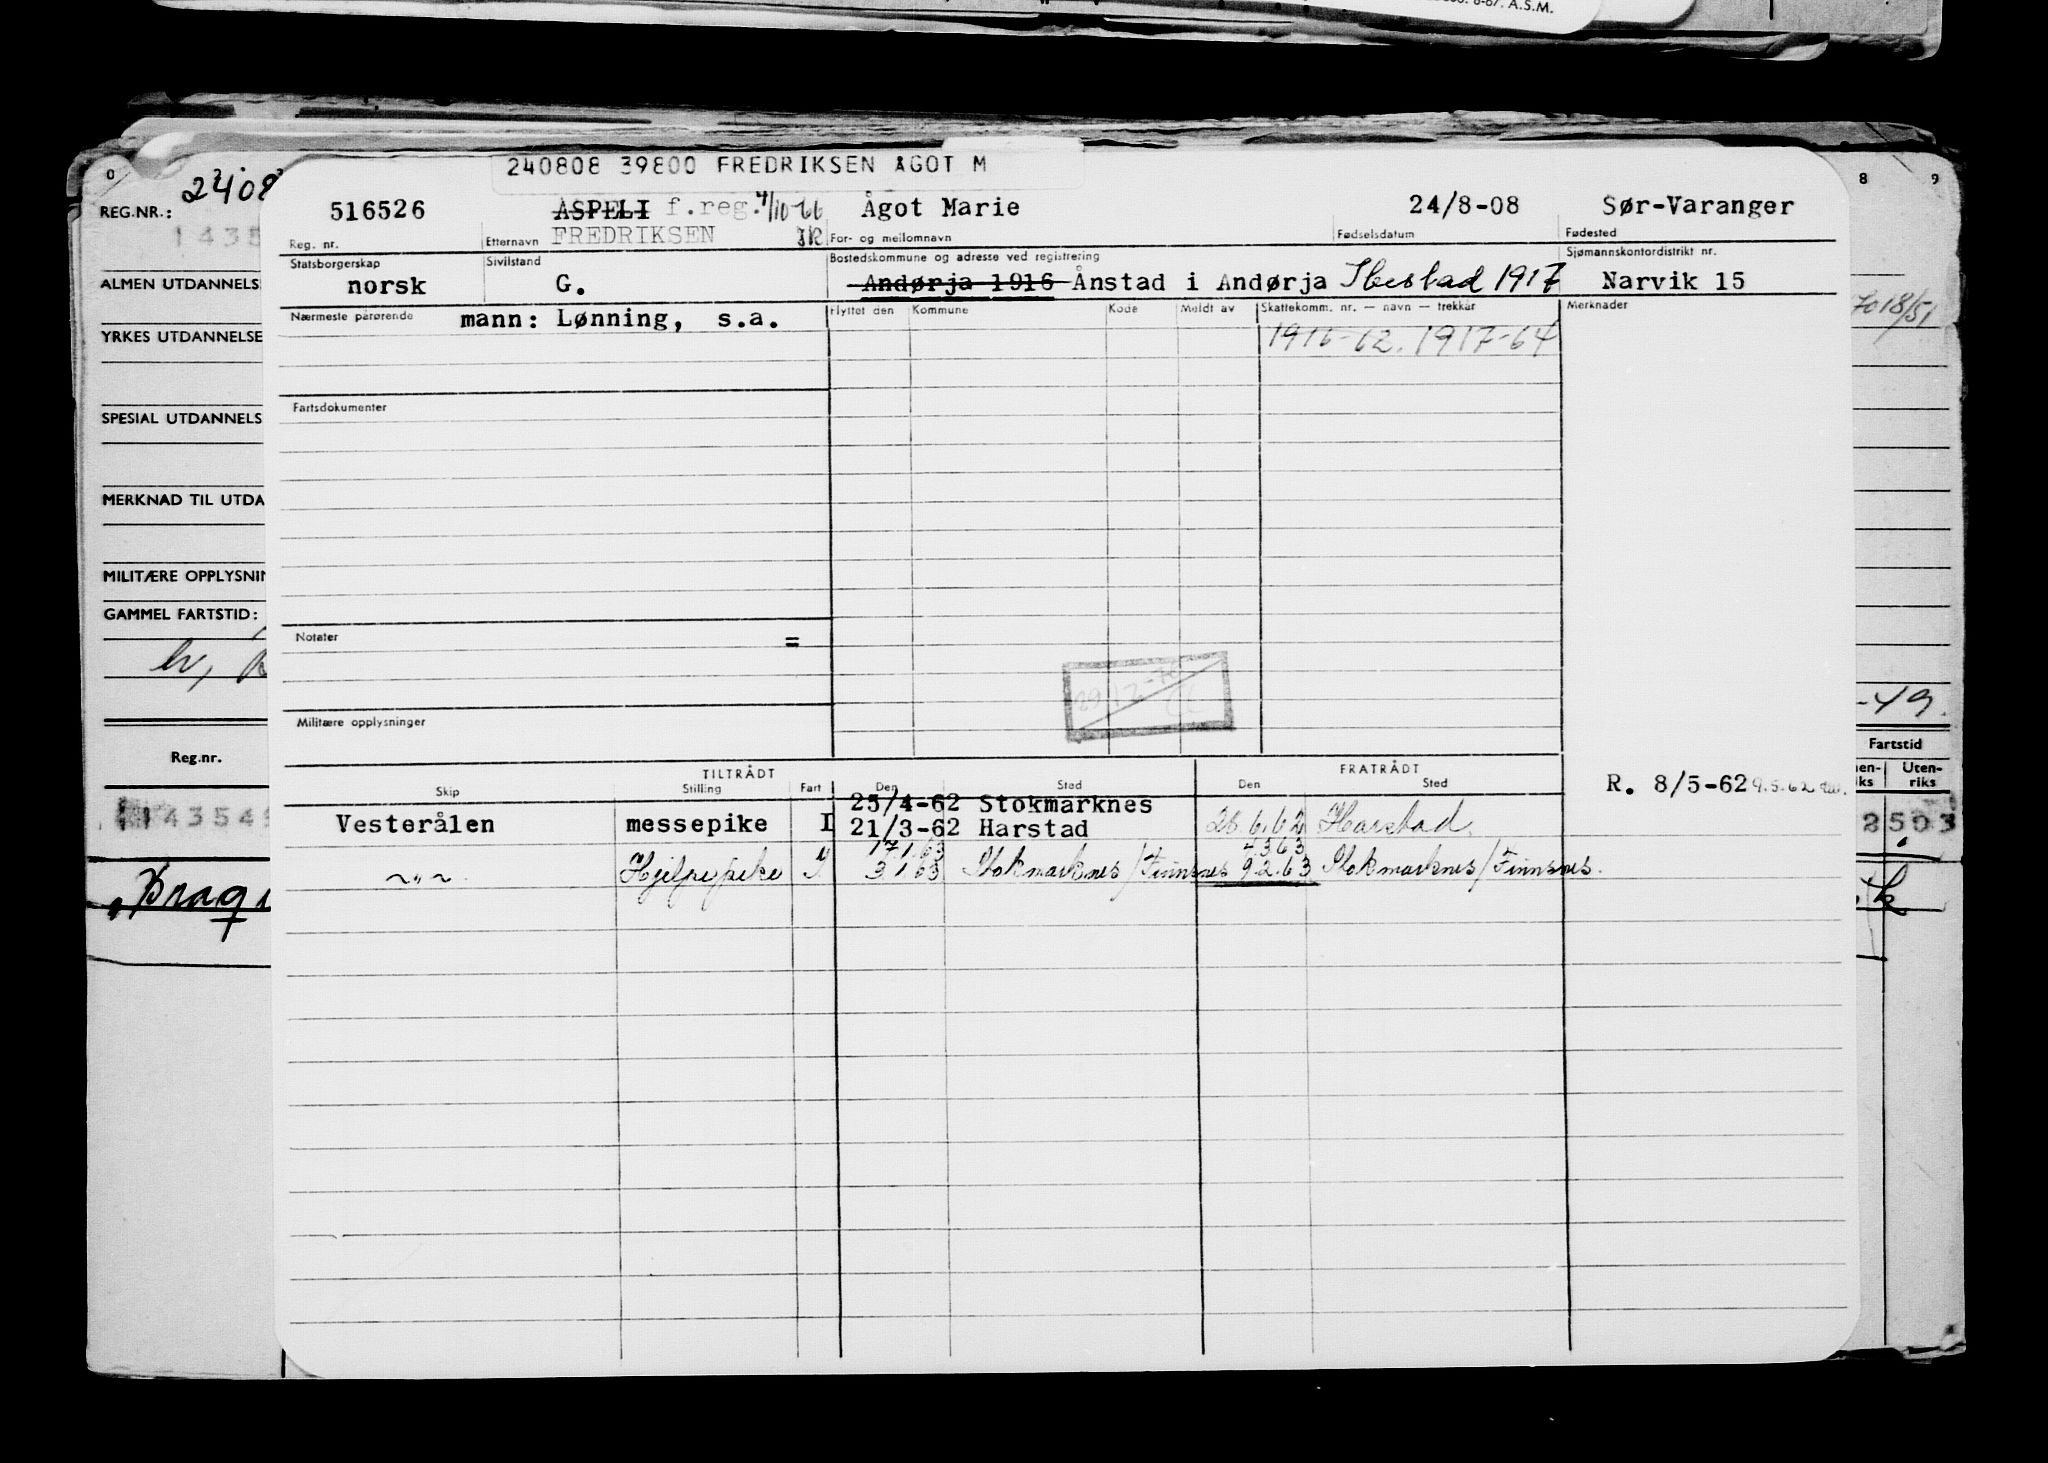 6-67. A.S.M.
240808 39800 FREDRIKSEN ÅGOT M
0 2408 8 9
REG.NR.: 516526 ASPELI f.reg. 4/10-66 Ågot Marie 24/8-08 Sør-Varanger
1435 FREDRIKSEN
Reg. nr. Etternavn For- og mellomnavn Fødselsdatum Fødested
Statsborgerskap Sivilstand Bostedskommune og adresse ved registrering Sjømannskontordistrikt nr.
ALMEN UTDANNELS norsk G. Andørja 1916 Ånstad i Andørja Ibestad 1917 Narvik 15
Nærmeste pårørende mann: Lønning, s.a. Flyttet den Kommune Kode Meldt av Skattekomm. nr. — navn — trekkår Merknader
YRKES UTDANNELSE 1916-62. 1917-64
Fartsdokumenter
SPESIAL UTDANNELS
MERKNAD TIL UTDA
MILITÆRE OPPLYSNIN
GAMMEL FARTSTID:
Notater =
-49.
Militære opplysninger
Reg.nr. Fartstid
TILTRÅDT FRATRÅDT
Skip Stilling Fart Den Sted Den Sted
Uten-
riks
R. 8/5-62 9.5.62
25/4-62 Stokmarknes
Vesterålen messepike I 21/3-62 Harstad 26.6.62 Harstad.
143549 2503
17.1.63 4.3.63
~"~ Hjelpepike 3.1.63 Stokmarknes/Finnsnes 9.2.63 Stokmarknes/Finnsnes.